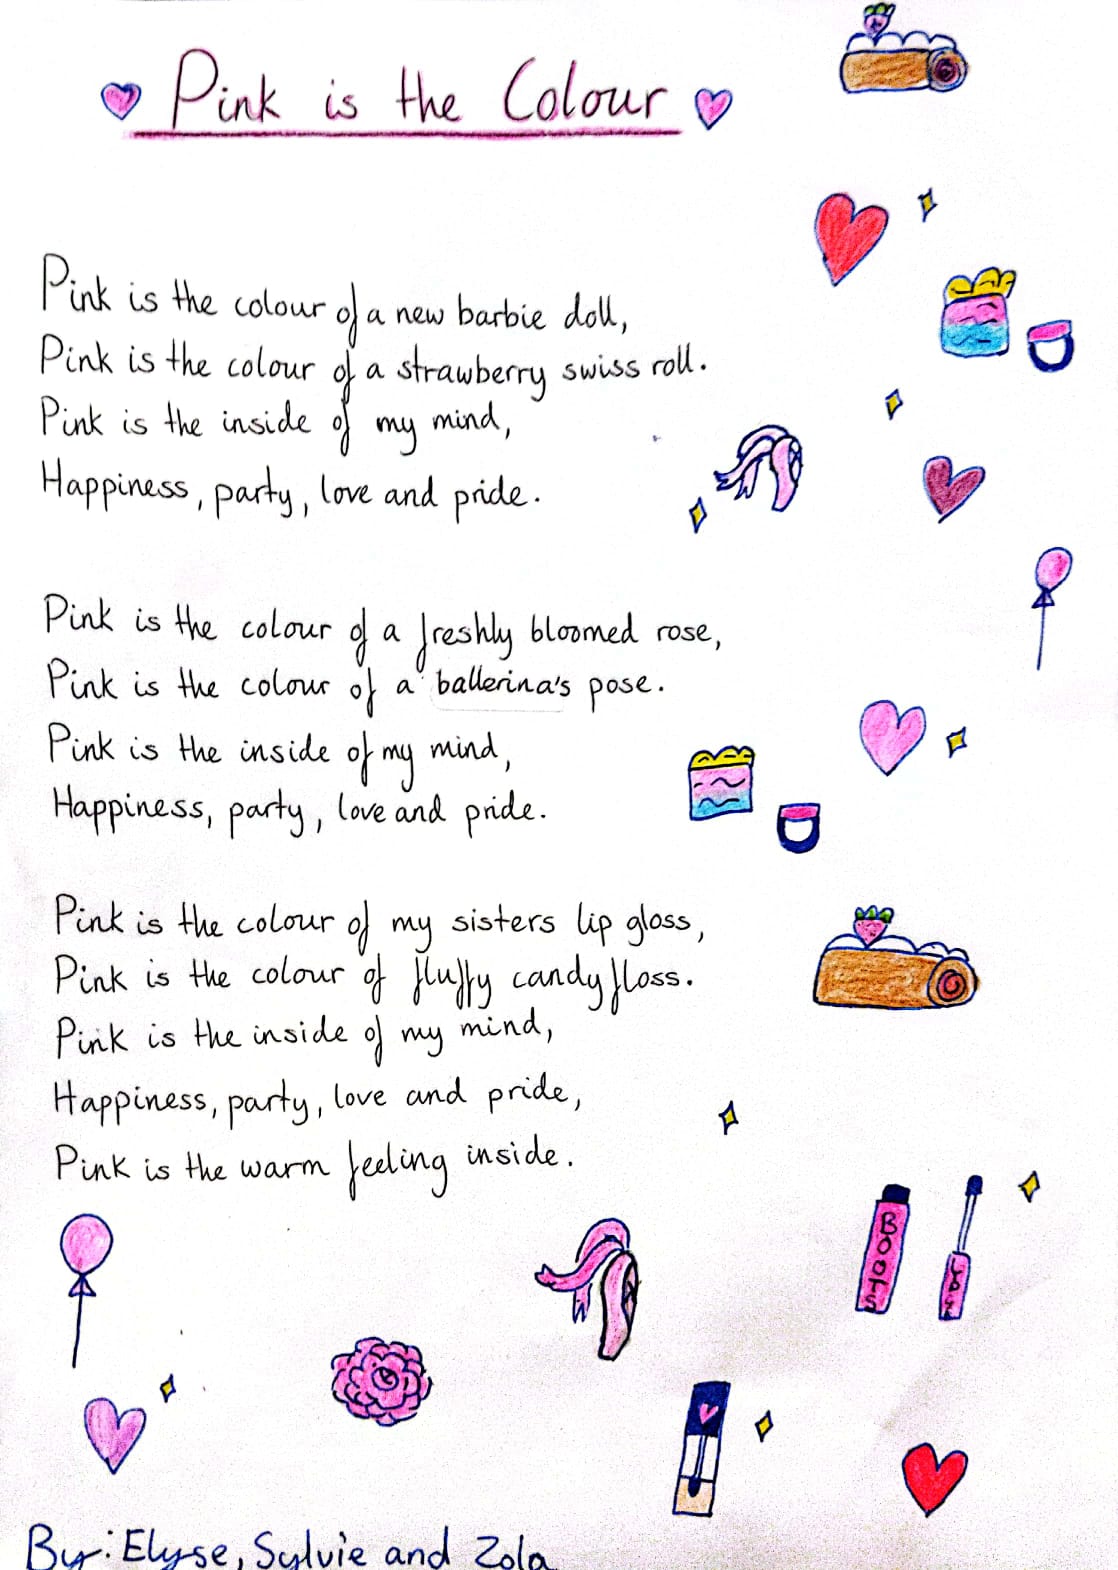 Pink is the Colour
Pink is the colour of a new barbie doll,
Pink is the colour of a strawberry swiss roll.
Pink is the inside of my mind,
Happiness, party, love and pride.
Pink is the colour of a freshly bloomed rose,
Pink is the colour of a ballerina's pose.
Pink is the inside of my mind,
Happiness, party, love and pride.
Pink is the colour of my sisters lip gloss,
Pink is the colour of fluffy candyfloss.
Pink is the inside of my mind,
Happiness, party, love and pride,
Pink is the warm feeling inside.
BOOTS
By: Elyse, Sylvie and Zola